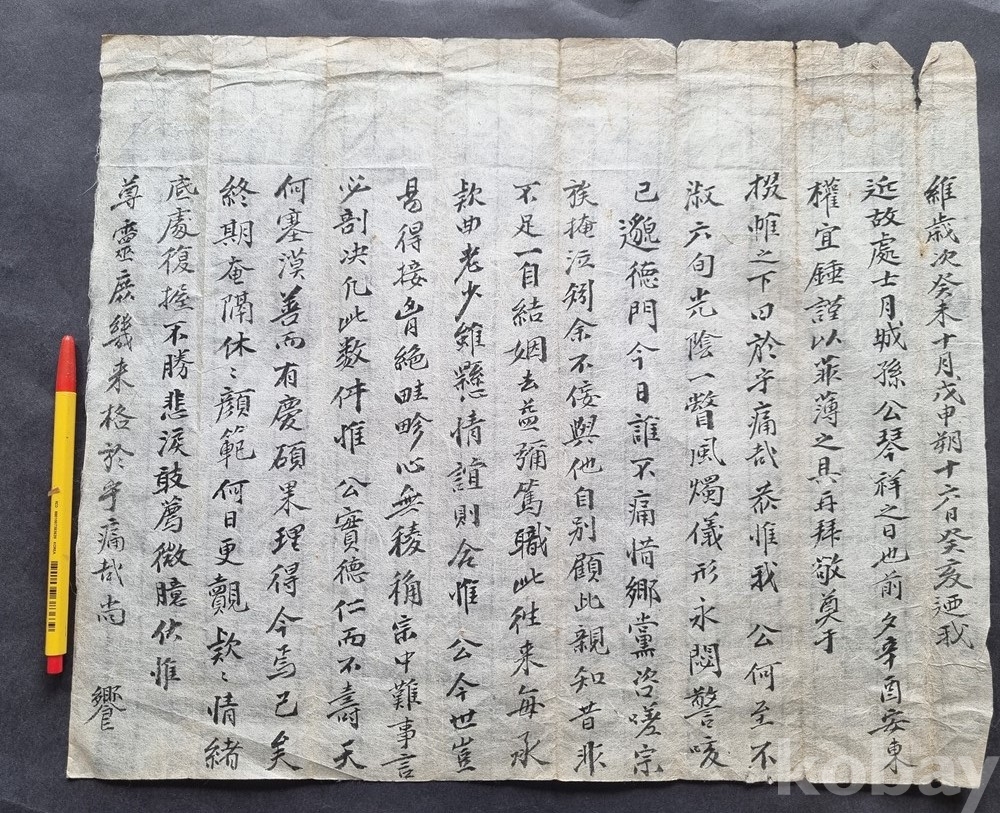 維歲次癸未十月戊申朔十六日癸亥迺我
近故處士月城孫 公琴祥之日也前夕辛酉安東
權宜錘謹以菲薄之具再拜敬奠于
掇帷之下曰於乎痛哉恭惟我 公何至不
淑六旬光陰一瞥風燭儀形永閟警咳
已邈德門今日誰不痛惜鄉黨咨嗟宗
族掩泣矧余不佞與他自別顧此親知昔非
不足一自結姻去益彌篤職此往来每承
款曲老少雖懸情誼則含惟 公今世豈
易得接胷絶畦畛心無稜稱宗中難事言
必剖决凡此数件惟 公實德仁而不壽天
何塞漠善而有慶碩果理得今焉已矣
終期奄隔休〻顔範何日更覿款〻情緒
底處復握不勝悲淚敢薦微臆伏惟
尊靈庶幾来格於乎痛哉尚
饗
kobay